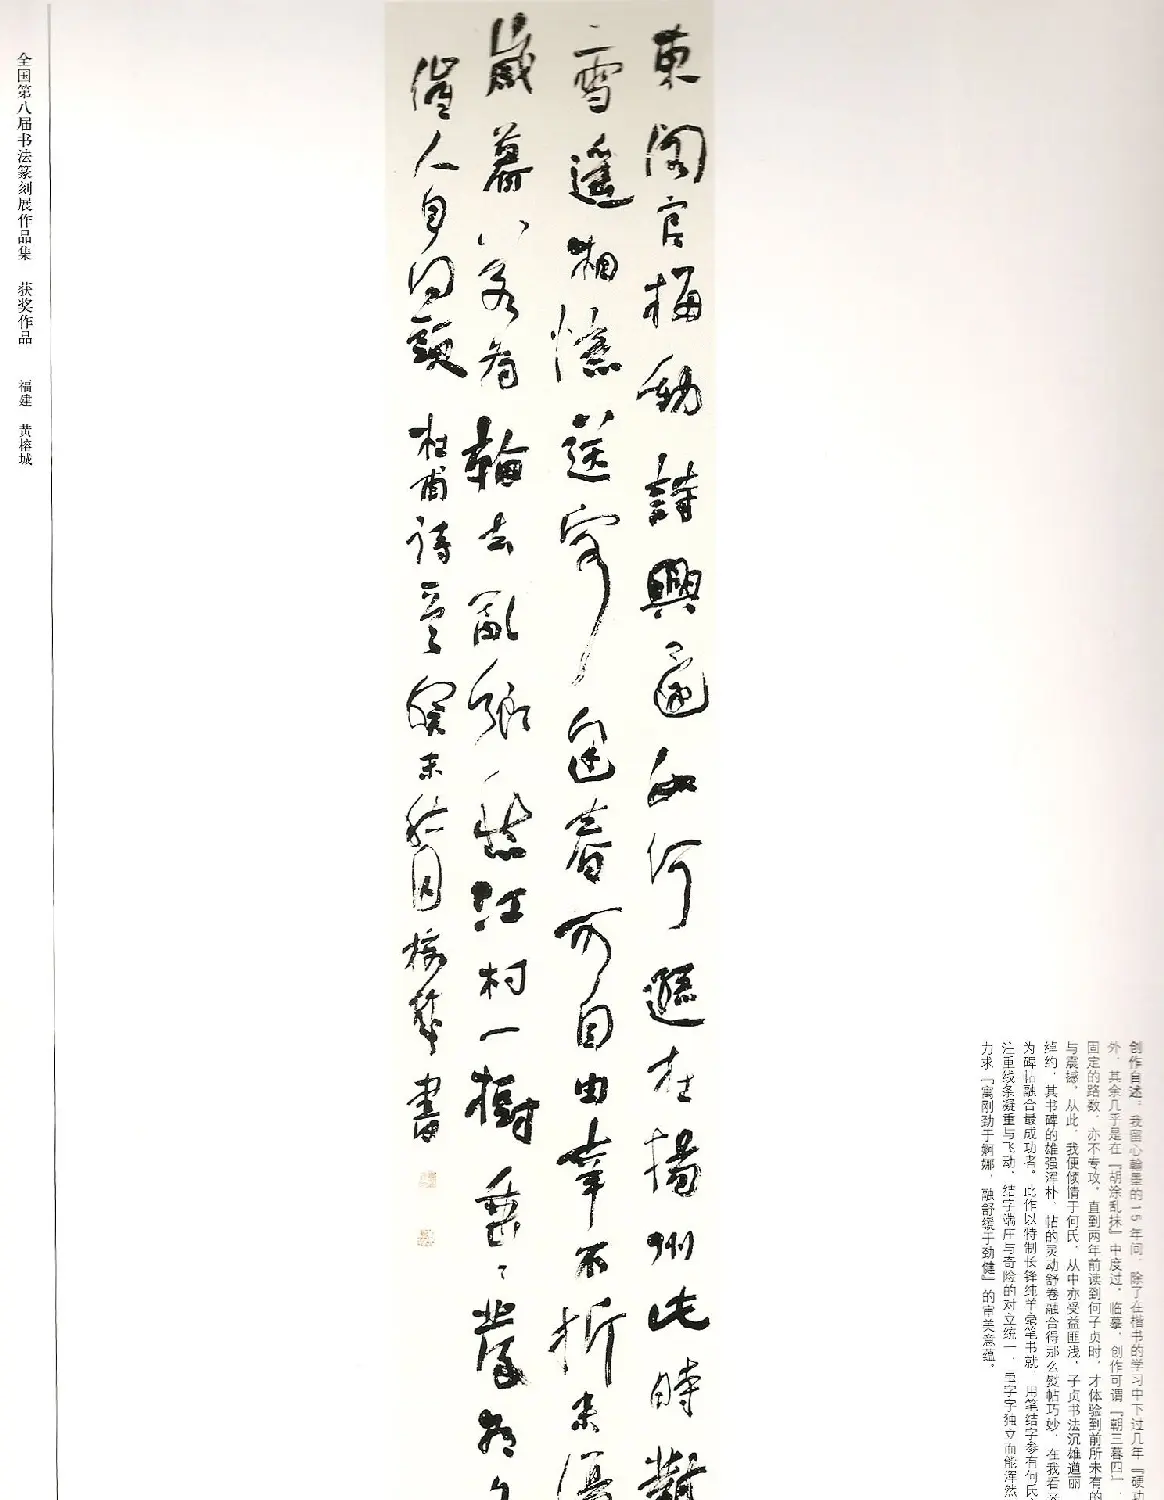 全国第八届书法篆刻展作品集 获奖作品 福建 黄榕城
東閣官梅動詩興還如何遜在揚州此時對
雪遥相憶送客逢春可自由幸不折来傷
歲暮若為去亂鄉愁江村一樹垂垂發朝夕
催人自白頭 杜甫詩一首 癸未秋月榕城書
创作自述:我留心翰墨的15年间,除了在楷书的学习中下过几年『硬功
外,其余几乎是在『胡涂乱抹』中度过,临摹、创作可谓『朝三暮四』,
固定的路数,亦不专攻,直到两年前读到何子贞时,才体验到前所未有的
与震撼,从此,我便倾情于何氏,从中亦受益匪浅,子贞书法沉雄遒丽
绰约,其书碑的雄强浑朴、帖的灵动舒卷融合得那么熨帖巧妙,在我看
为碑帖融合最成功者。此作以特制长锋纯羊毫笔书就,用笔结字参有何氏
注重线条凝重与飞动、结字端庄与奇险的对立统一,虽字字独立而能浑然
力求『寓刚劲于婀娜,融舒缓于劲健』的审美意蕴。